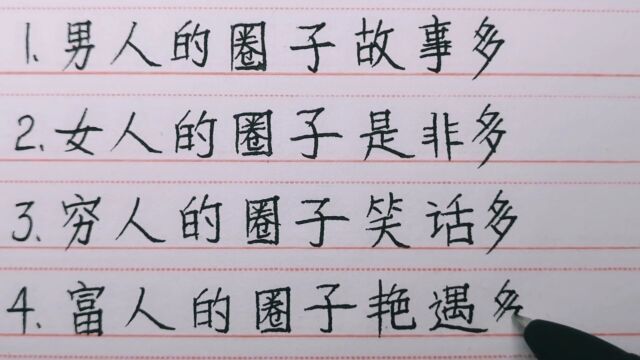 1. 男人的圈子故事多
2. 女人的圈子是非多
3. 穷人的圈子笑话多
4. 富人的圈子艳遇多